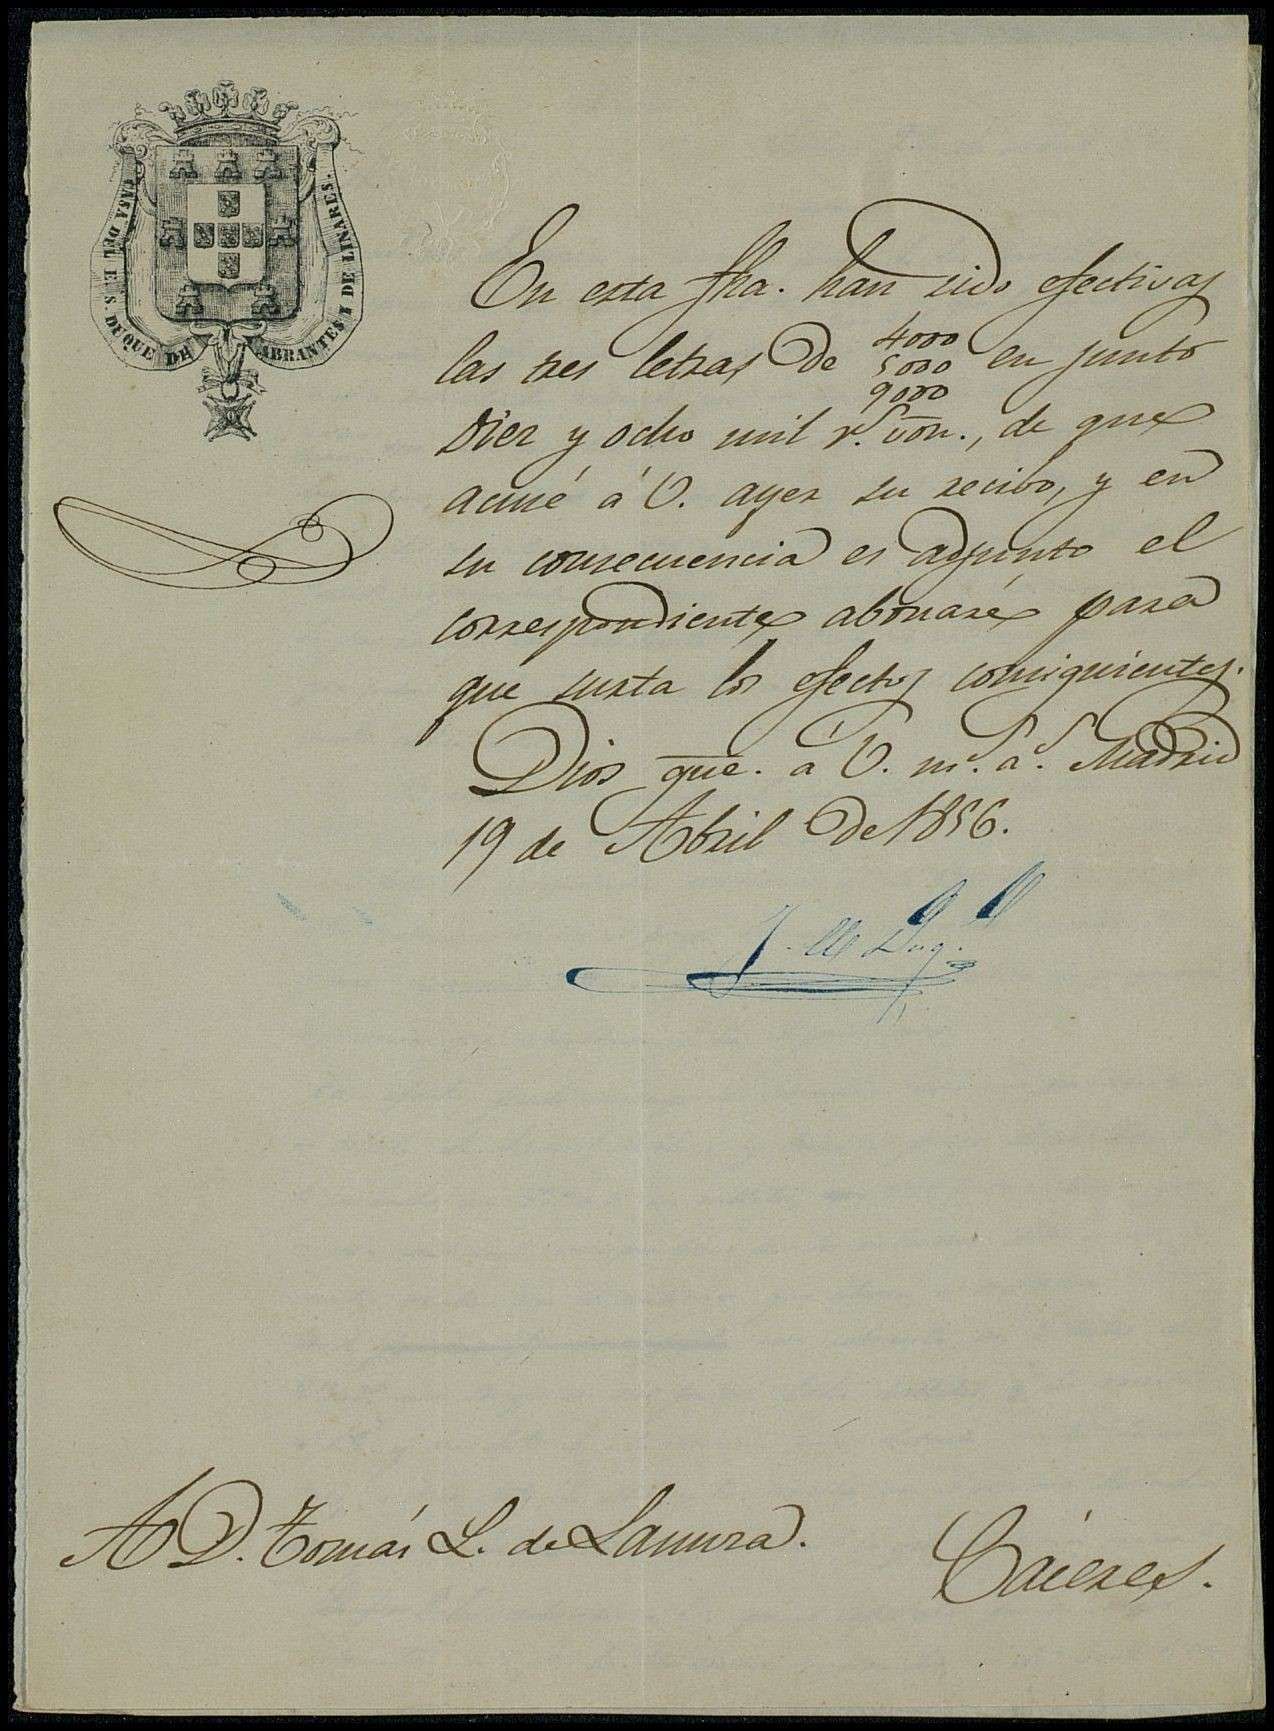 CASA DEL E. S. DUQUE DE ABRANTES I DE LINARES.
En esta fha. han sido efectivas
las tres letras de 4000 5000 9000 en junto
Diez y ocho mil r.s von., de que
acusé á V. ayer su recibo, y en
su consecuencia es adjunto el
correspondiente abonaré para
que surta los efectos consiguientes.
Dios gue. á V. m.s a.s Madrid
19 de Abril de 1856.
A D. Tomás L. de Sanura.
Cáceres.